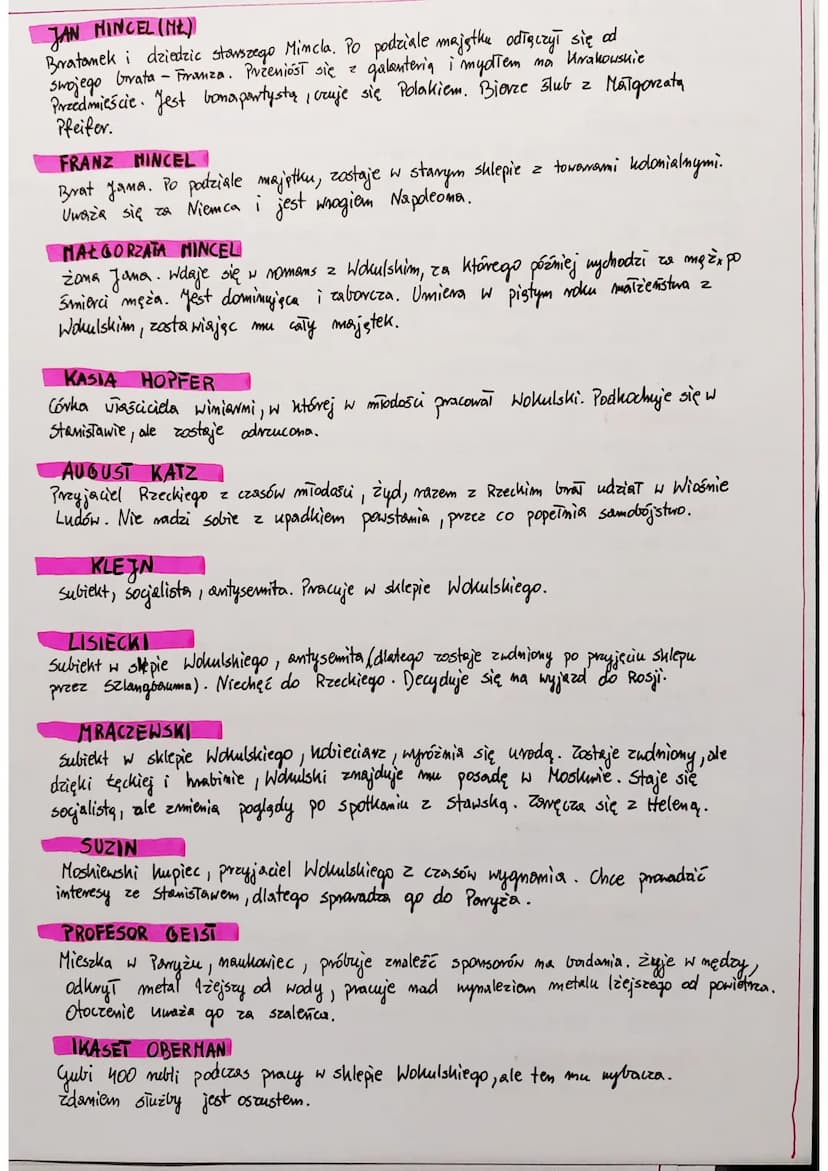 JAN MINCEL (MŁ)
Bratanek i dziedzic starszego Mincla. Po podziale majątku odłączył się od
swojego brata - Franza. Przeniósł się z galanterią i mydłem na Krakowskie
Przedmieście. Jest bonapartystą, czuje się Polakiem. Bierze ślub z Małgorzatą
Pfeifer.
FRANZ MINCEL
Brat Jana. Po podziale majątku, zostaje w starym sklepie z towarami kolonialnymi.
Uważa się za Niemca i jest wrogiem Napoleona.
MAŁGORZATA MINCEL
żona Jana. Wdaje się w romans z Wokulskim, za którego później wychodzi za mąż po
śmierci męża. Jest dominująca i zaborcza. Umiera w piątym roku małżeństwa z
Wokulskim, zostawiając mu cały majątek.
KASIA HOPFER
Córka właściciela winiarni, w której w młodości pracował Wokulski. Podkochuje się w
Stanisławie, ale zostaje odrzucona.
AUGUST KATZ
Przyjaciel Rzeckiego z czasów młodości, żyd, razem z Rzeckim brał udział w Wiośnie
Ludów. Nie radzi sobie z upadkiem powstania, przez co popełnia samobójstwo.
KLEJN
Subiekt, socjalista, antysemita. Pracuje w sklepie Wokulskiego.
LISIECKI
Subiekt w sklepie Wokulskiego, antysemita (dlatego zostaje zwolniony po przyjęciu sklepu
przez Szlangbauma). Niechęć do Rzeckiego. Decyduje się na wyjazd do Rosji.
MRACZEWSKI
Subiekt w sklepie Wokulskiego, kobieciarz, wyróżnia się urodą. Zostaje zwolniony, ale
dzięki Łęckiej i hrabinie, Wokulski znajduje mu posadę w Moskwie. Staje się
socjalistą, ale zmienia poglądy po spotkaniu z Stawską. Zaręcza się z Heleną.
SUZIN
Moskiewski kupiec, przyjaciel Wokulskiego z czasów wygnania. Chce prowadzić
interesy ze Stanisławem, dlatego sprowadza go do Paryża.
PROFESOR GEIST
Mieszka w Paryżu, naukowiec, próbuje znaleźć sponsorów na badania. żyje w nędzy,
odkrył metal lżejszy od wody, pracuje nad wynalezien metalu lżejszego od powietrza.
Otoczenie uważa go za szaleńca.
IKASET OBERMAN
Gubi 400 rubli podczas pracy w sklepie Wokulskiego, ale ten mu wybacza.
zdaniem służby jest oszustem.